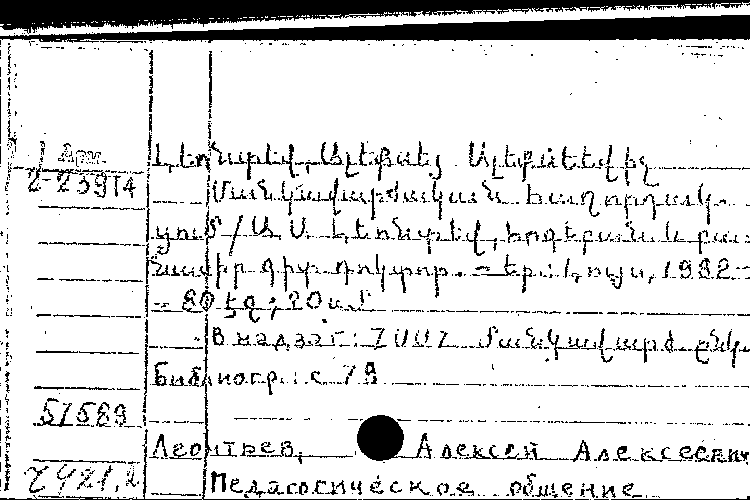 Арм.
2-23914
Լեոնտրել, Ալեքսեյ Ալեքսեեվիչ
Մանկավարժական հաղորդակ-
ցում / Ա. Ա. Լեոնտրել, հոգեբան. և բա-
նասիր. գիտ. դոկտոր. – Եր.: Լույս, 1982–
– 80 էջ; 20 սմ
В надзаг: ՀՍՍՀ մանկավարժ. ընկ
Библиогр.: с 79
51589
Леонтьев, Алексей Алексеевич
2421.2
Педагогическое общение